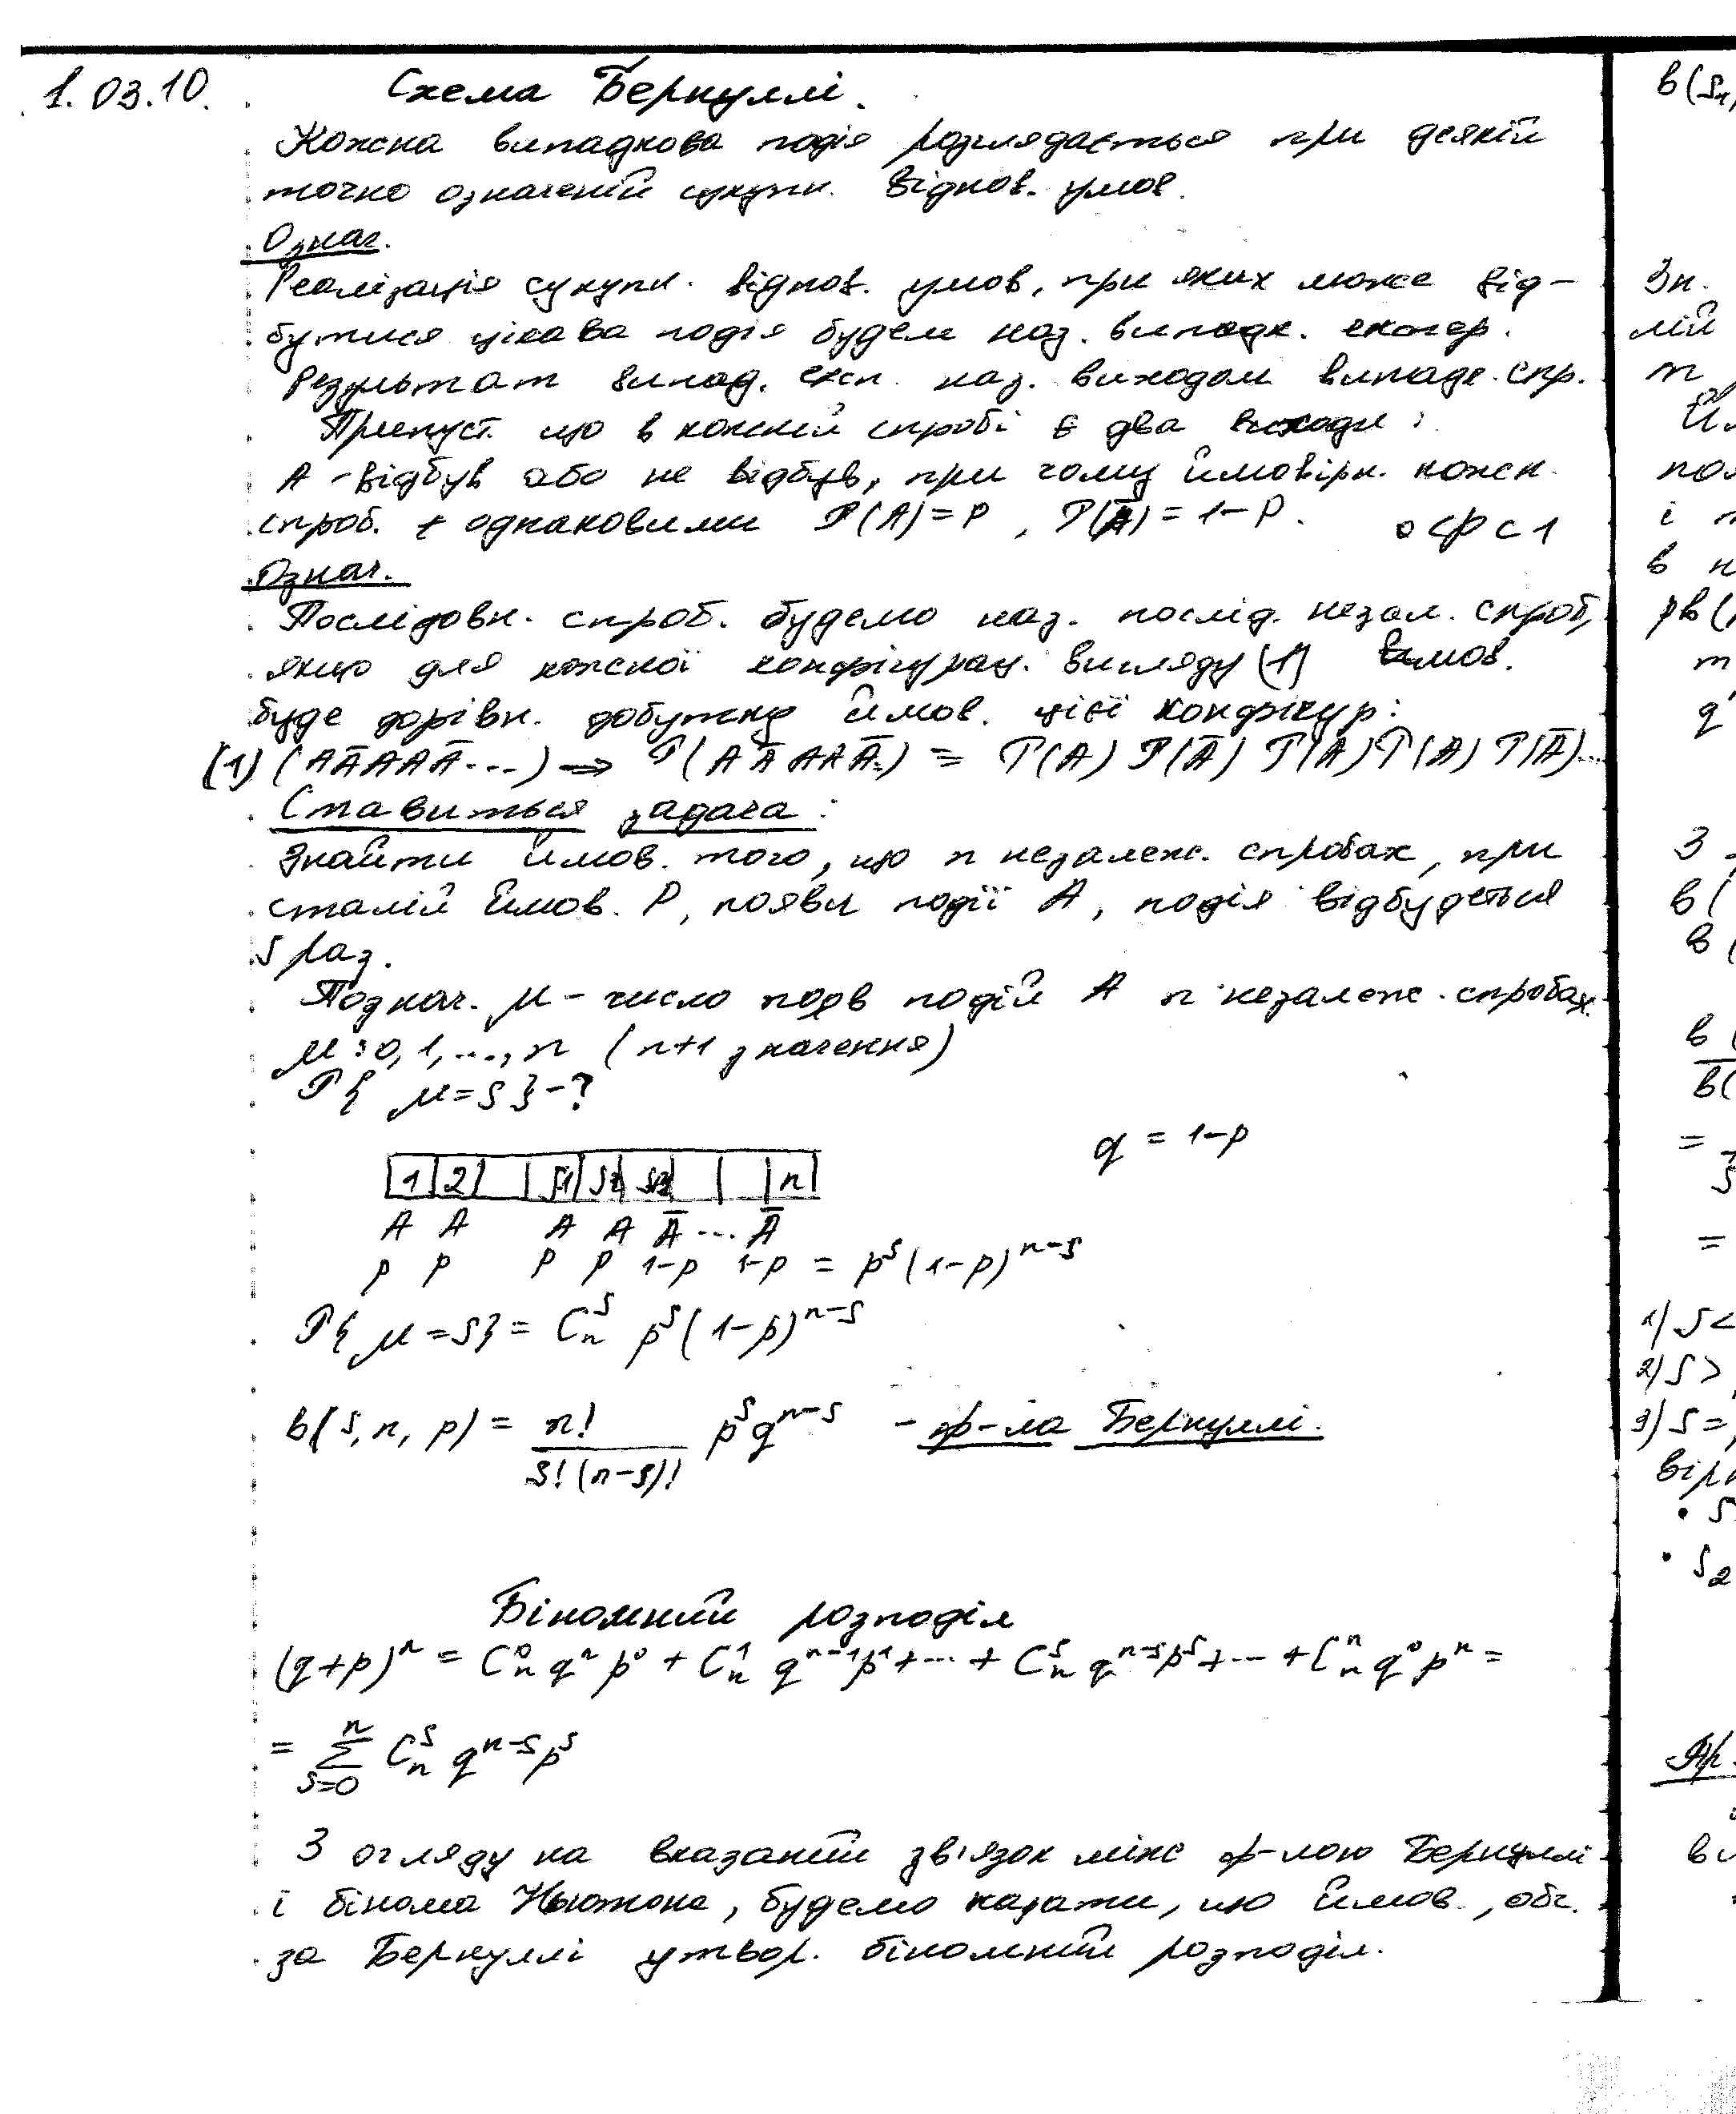 1.03.10. Схема Бернуллі.
Кожна випадкова подія розглядається при деякій
точно означеній сукупн. віднов. умов.
Означ.
Реалізація сукупн. віднов. умов, при яких може від-
бутися цікава подія будем наз. випадк. експер.
Результат випад. експ. наз. виходом випадк. спр.
Припуст. що в кожній спробі є два виходи:
A - відбув або не відбув, при чому ймовірн. кожн.
спроб. є однаковими P(A)=p, P(Ā)=1-p. 0<p<1
Означ.
Послідовн. спроб. будемо наз. послід. незал. спроб,
якщо для кожної конфігурац. вигляду (1) ймов.
буде дорівн. добутку ймов. цієї конфігур:
(1) (AĀAAĀ...) ⇒ P(AĀAAĀ..) = P(A) P(Ā) P(A) P(A) P(Ā)...
Ставиться задача:
Знайти ймов. того, що n незалеж. спробах, при
сталій ймов. P, появи події A, подія відбудеться
s раз.
Познач. μ - число появ подій A n незалеж. спробах.
μ=0, 1, ..., n (n+1 значення)
P{ μ=s }-?
q = 1-p
1 2 s-1 s n
A A A A Ā ... Ā
p p p p 1-p 1-p = p^s (1-p)^{n-s}
P{ μ=s} = C_n^s p^s (1-p)^{n-s}
b(s, n, p) = n! / s!(n-s)! p^s q^{n-s} - ф-ла Бернуллі.
Біномний розподіл
(q+p)^n = C_n^0 q^n p^0 + C_n^1 q^{n-1} p^1 + ... + C_n^s q^{n-s} p^s + ... + C_n^n q^0 p^n =
= Σ_{s=0}^n C_n^s q^{n-s} p^s
З огляду на вказаний зв'язок між ф-лою Бернуллі
і бінома Ньютона, будемо казати, що ймов., обч.
за Бернуллі утвор. біномний розподіл.